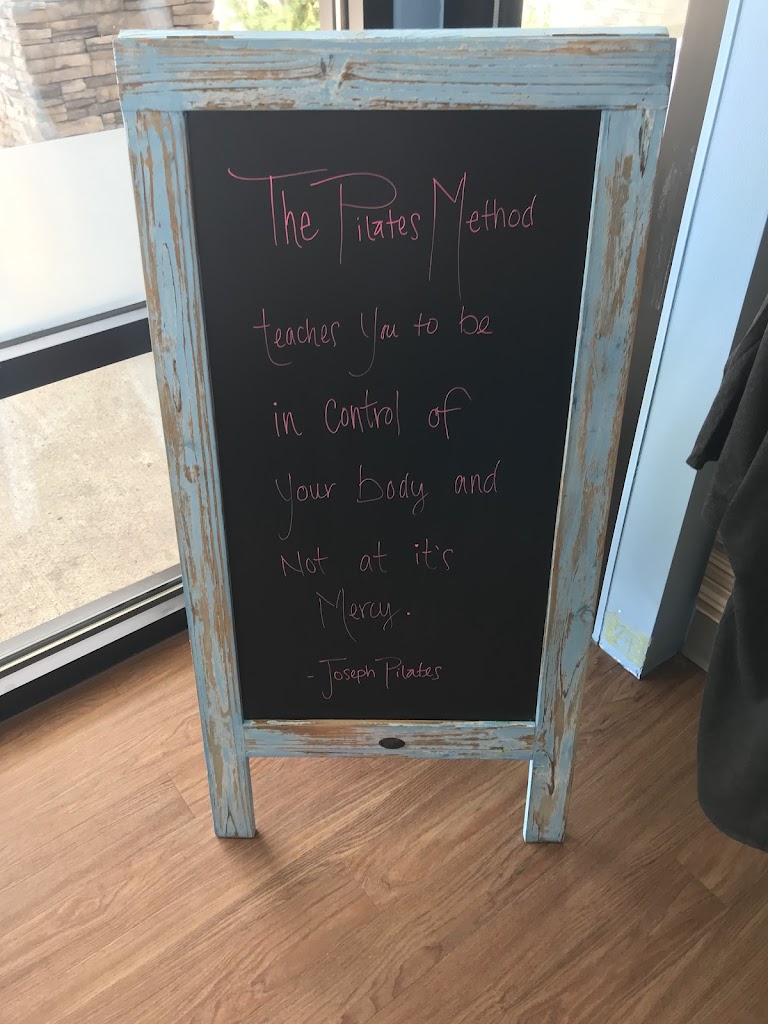 The Pilates Method
teaches you to be
in control of
your body and
Not at it's
Mercy.
- Joseph Pilates